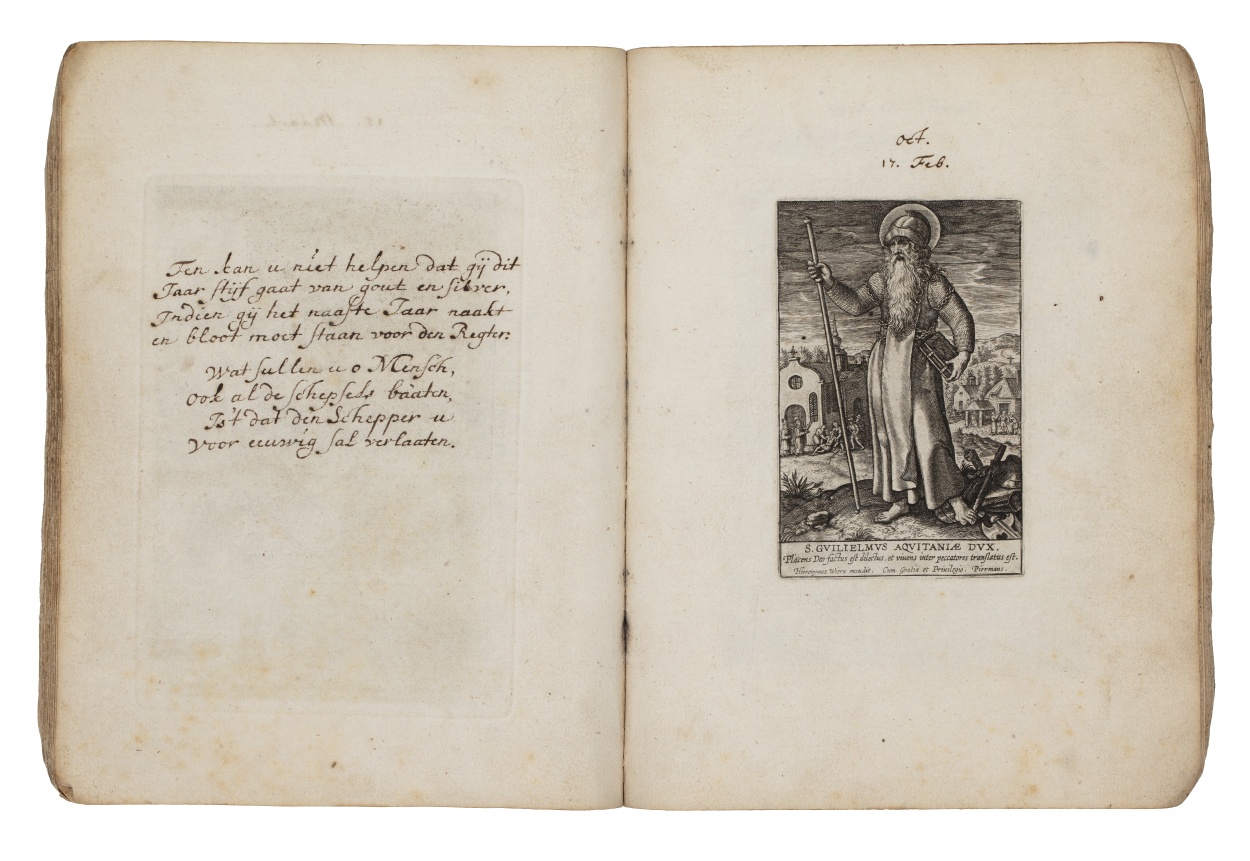 Ten kan u niet helpen dat gÿ dit
Jaar stijf gaat van gout en silver,
Indien gÿ het naaste Jaar naakt
en bloot moet staan voor den Regter:
Wat sullen u o Mensch,
ook al de schepsels baaten,
Is't dat den Schepper u
voor eeuwig sal verlaaten.
oct.
17. Feb.
S. GVILIELMVS AQVITANIÆ DVX.
Placens Deo factus est dilectus, et viuens inter peccatores translatus est.
Hieronymus Wierx excudit. Cum Gratia et Privilegio. Piermans.